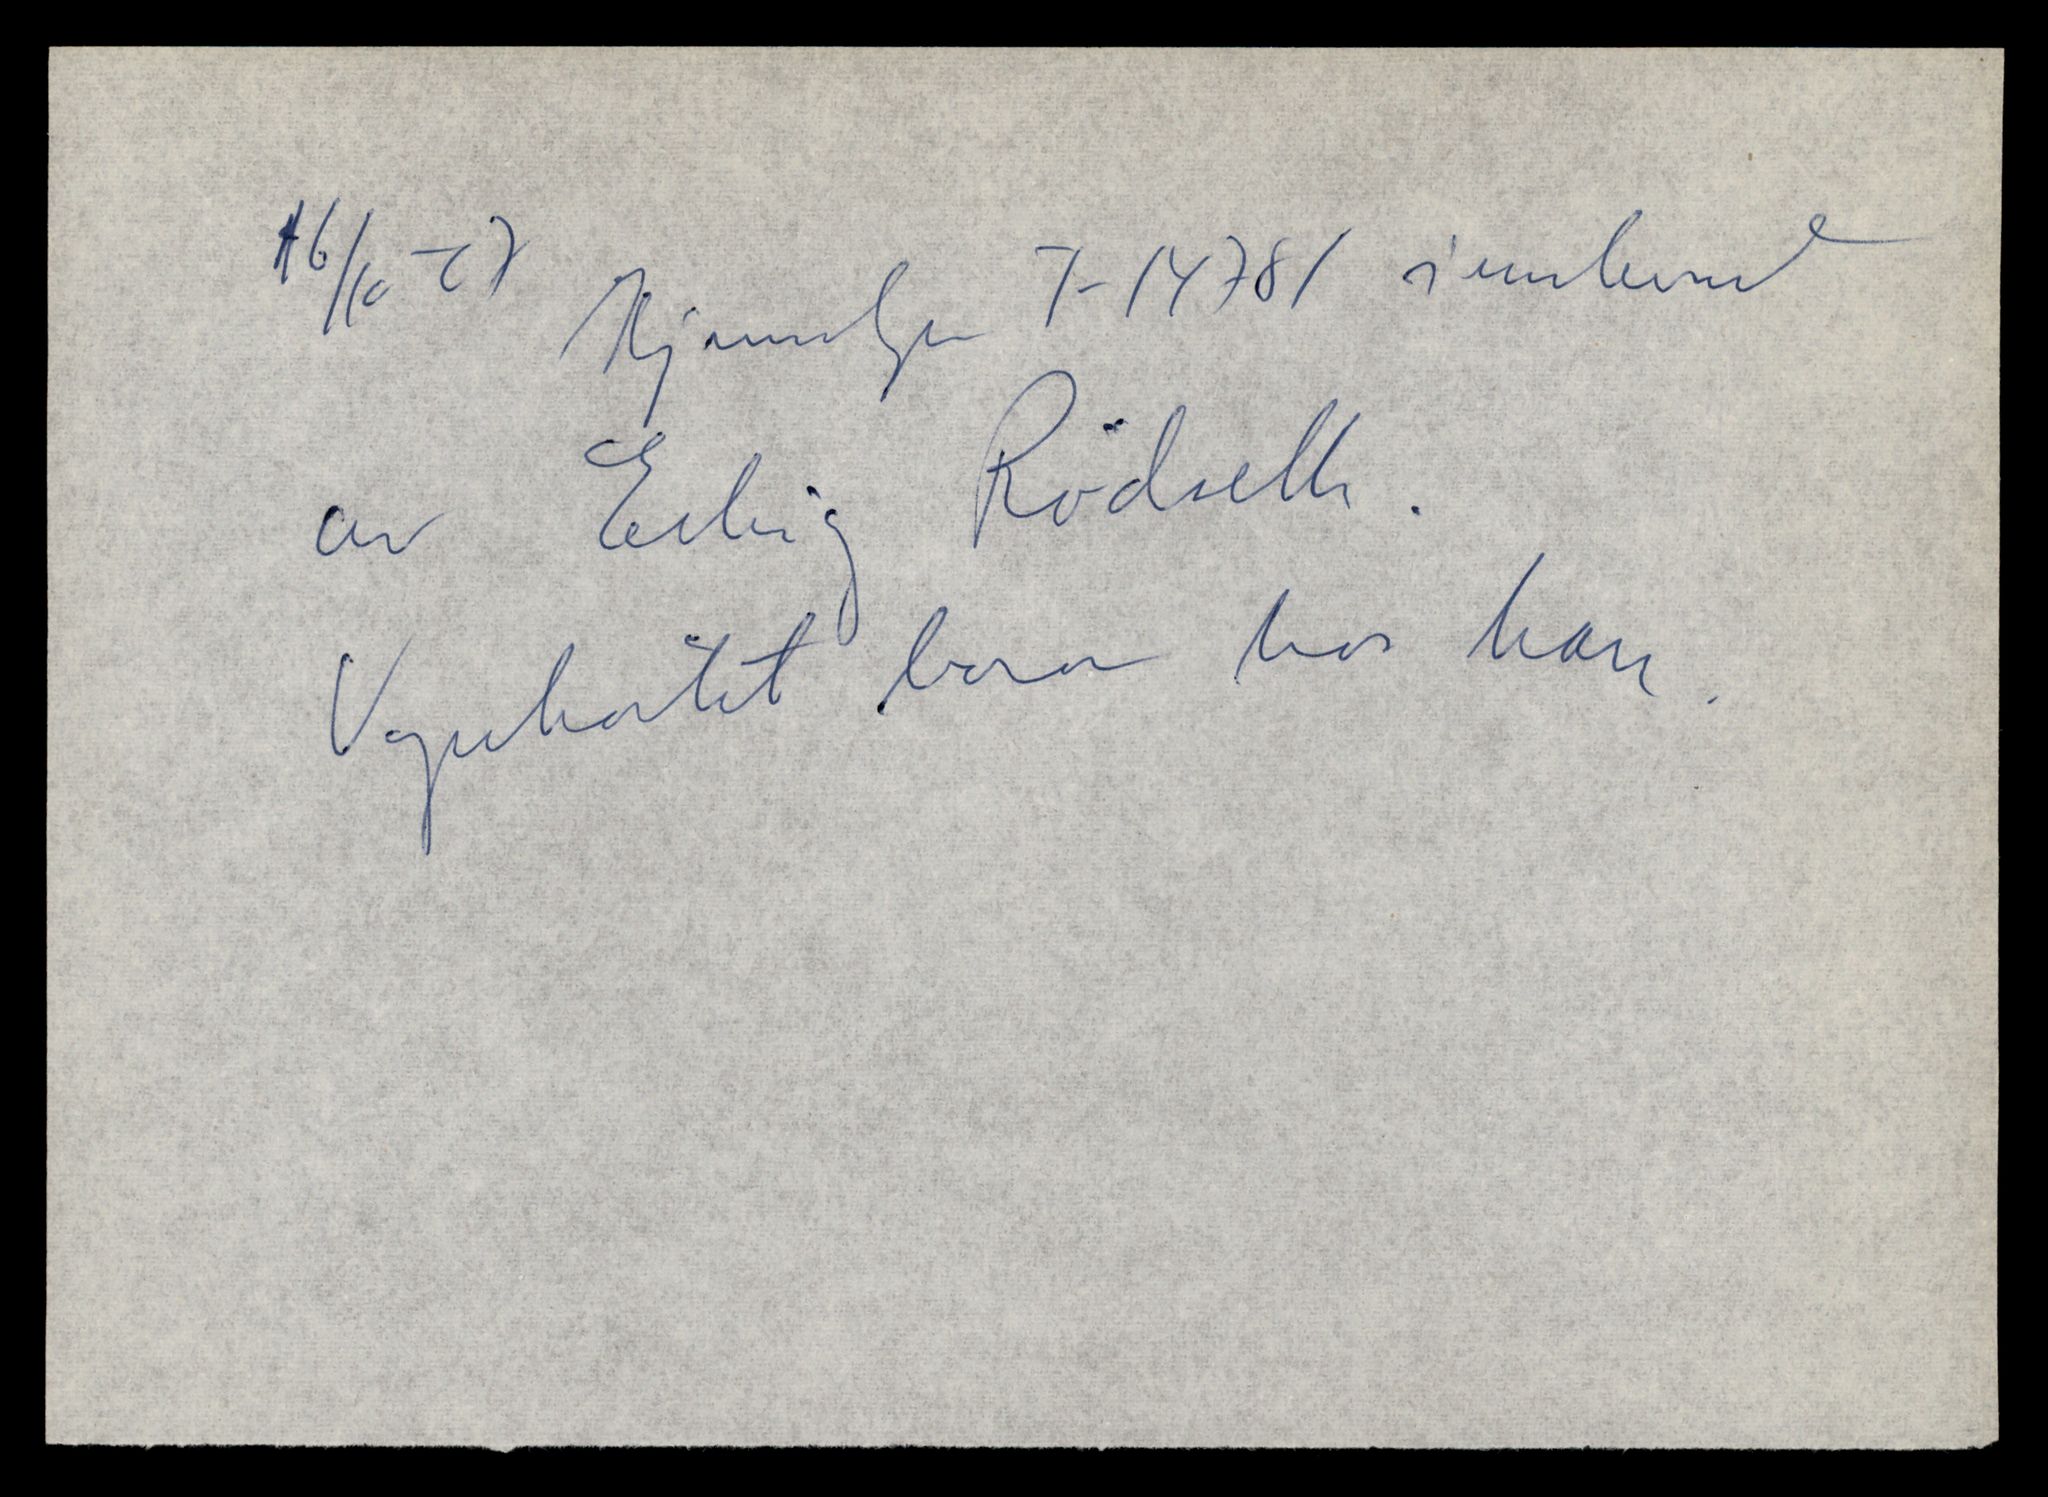 16/10-67 Kjennelsen T-14781 innlevert
av Erling Rödseth.
Vognkortet borte hos han.